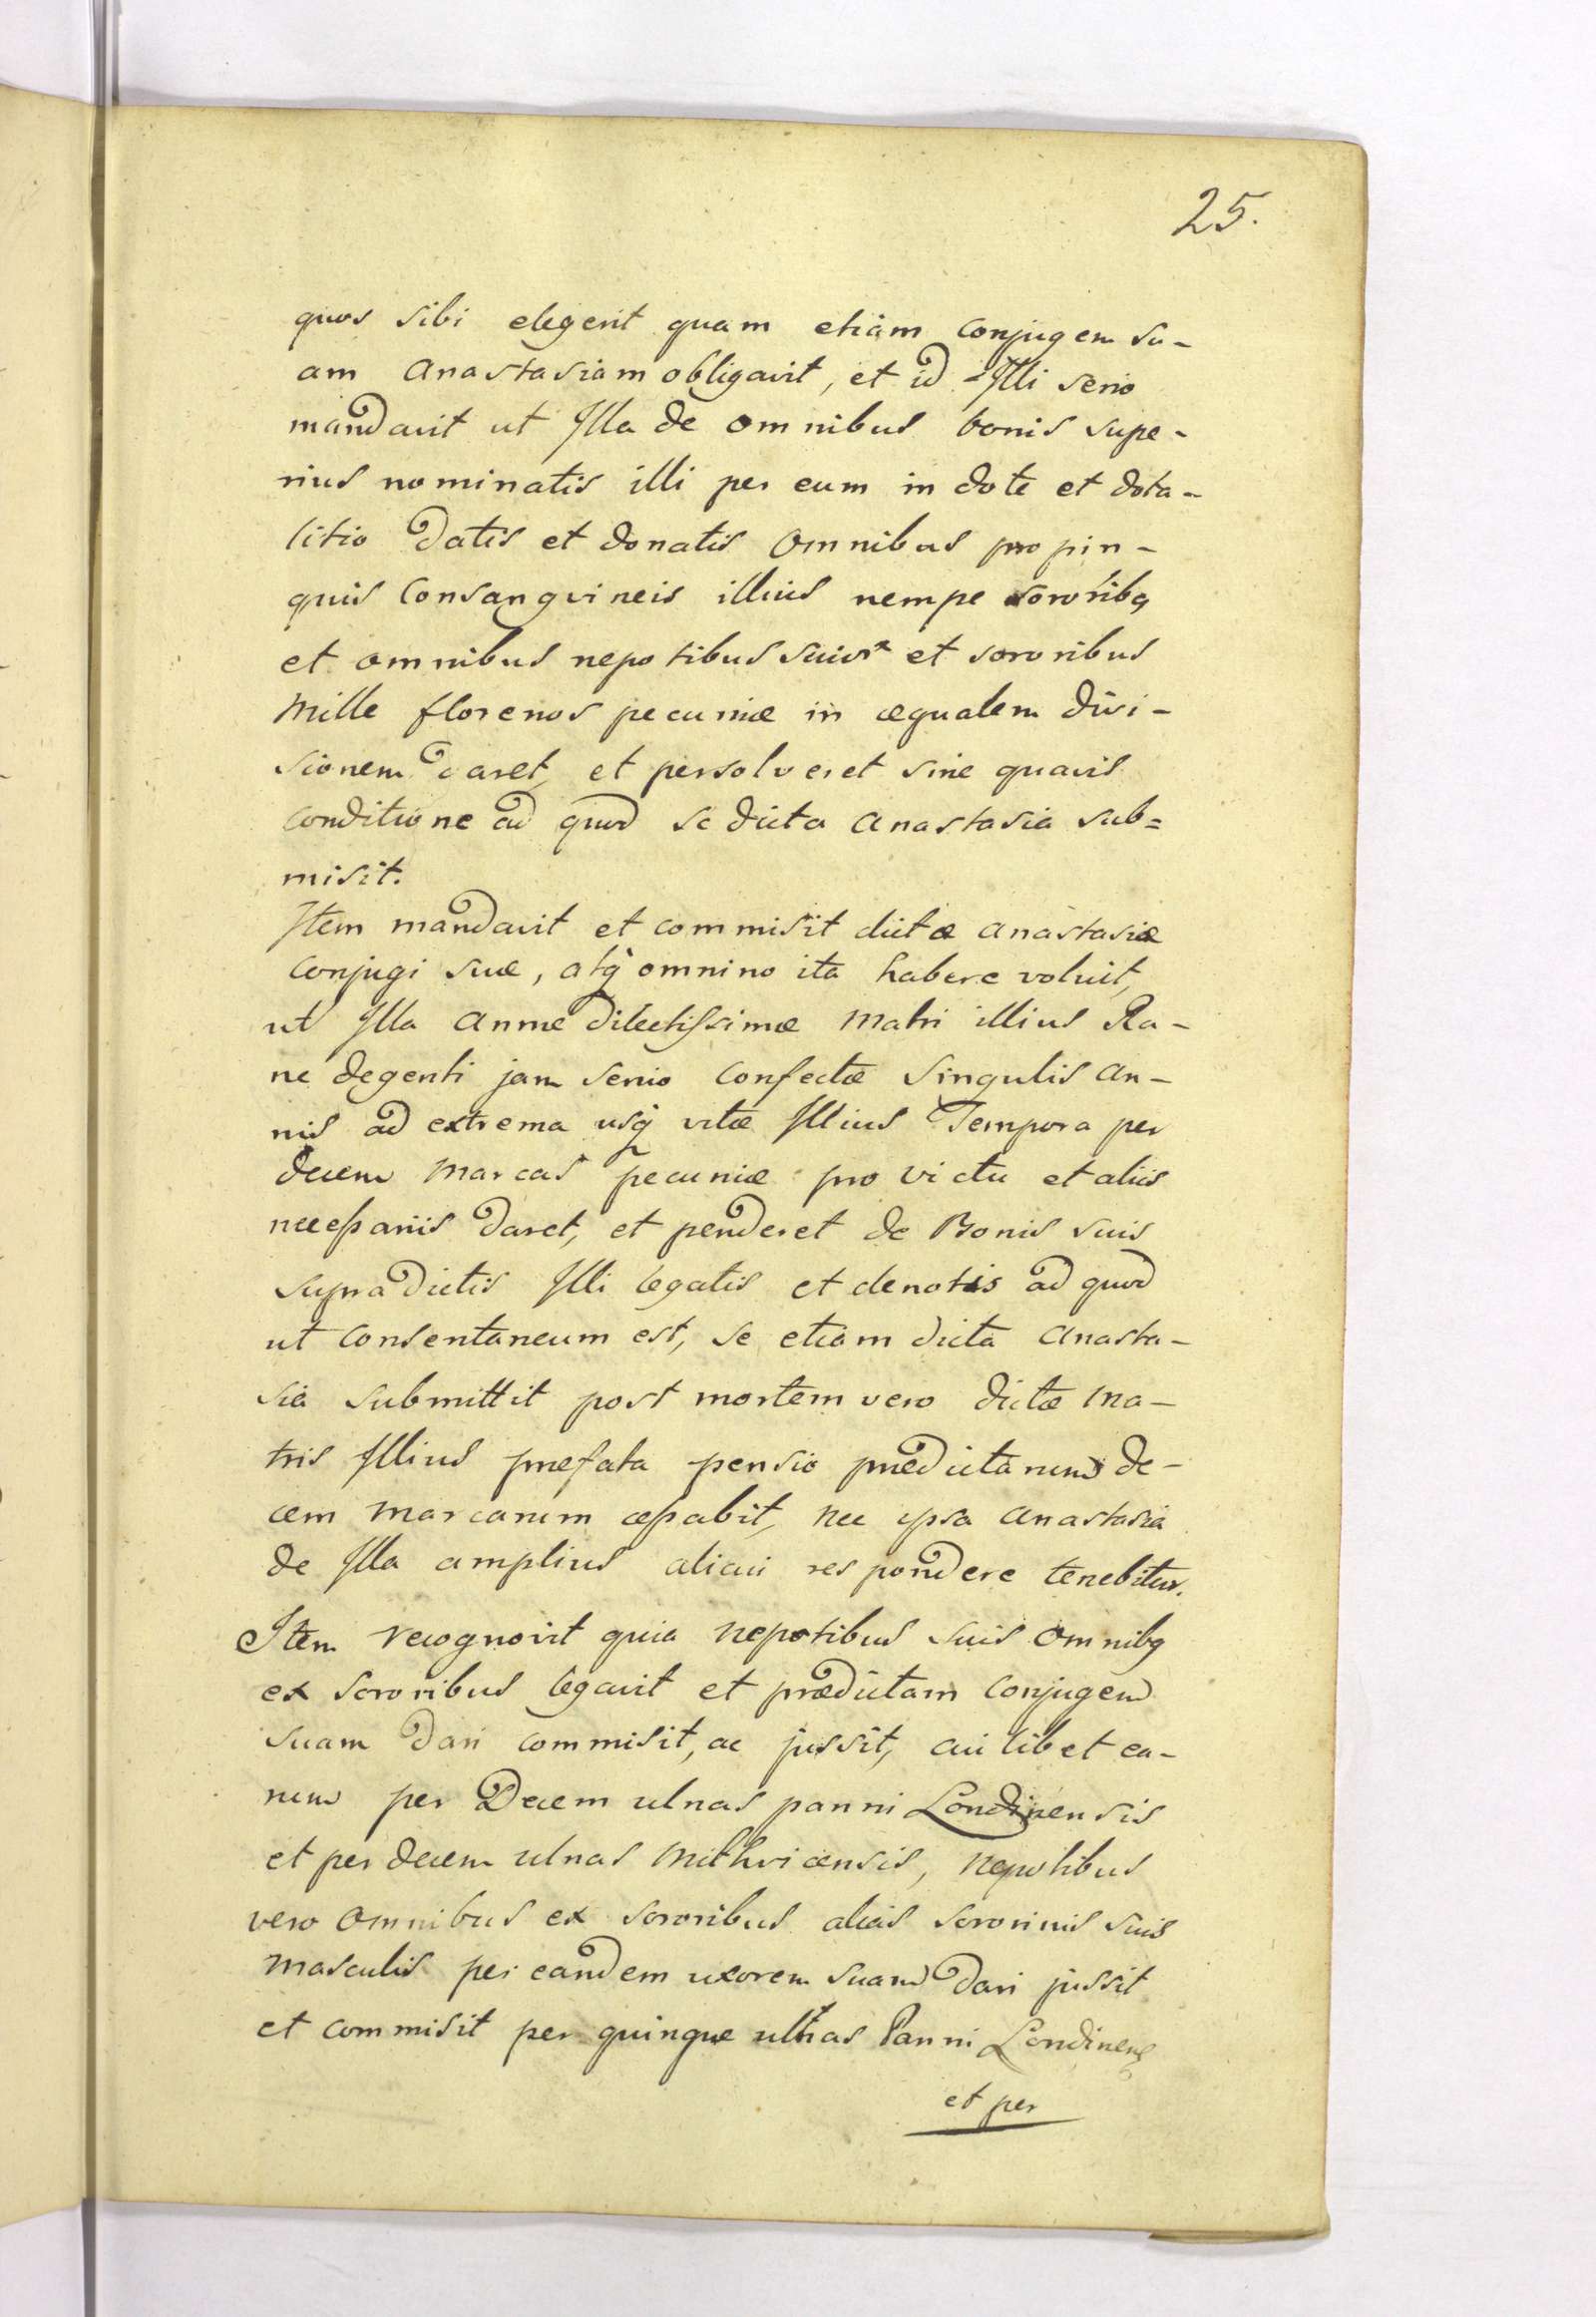 25.
quos sibi elegerit quam etiam conjugem su-
am Anastasiam obligavit, et id Illi serio
mandavit ut Illa de omnibus bonis supe-
rius nominatis illi per eum in dote et dota-
litio datis et donatis omnibus propin-
quis consangvineis illius nempe sororibq
et omnibus nepotibus et sororibus
mille florenos pecuniæ in æqualem divi-
sionem daret, et persolveret sine quavis
conditione ad quod se dicta Anastasia sub=
misit.
Item mandavit et commisit dictæ Anastasiæ
conjugi suæ, atq omnino ita habere voluit,
ut Illa Annæ dilectissimæ Matri illius Ra-
ne degenti jam senio confectæ singulis an-
nis ad extrema usq vitæ Illius Tempora per
decem Marcas pecuniæ pro victu et aliis
necessariis daret, et penderet de Bonis suis
supradictis Illi legatis et denotis ad quod
ut consentaneum est, se etiam dicta Anasta-
sia submittit post mortem vero dictæ Ma-
tris Illius præfata pensio prædictarum de-
cem Marcarum cessabit, nec ipsa Anastasia
de Illa amplius alicui respondere tenebitur.
Item recognovit quia nepotibus suis omnibq
ex sororibus legavit et prædictam conjugem
suam dari commisit, ac jussit, cuilibet ea-
rum per Decem ulnas panni Londinensis
et per decem ulnas Mithvicensis, nepotibus
vero omnibus ex sororibus alias sororinis suis
masculis per eandem uxorem suam dari jussit
et commisit per quinque ulnas Panni Londinens
et per